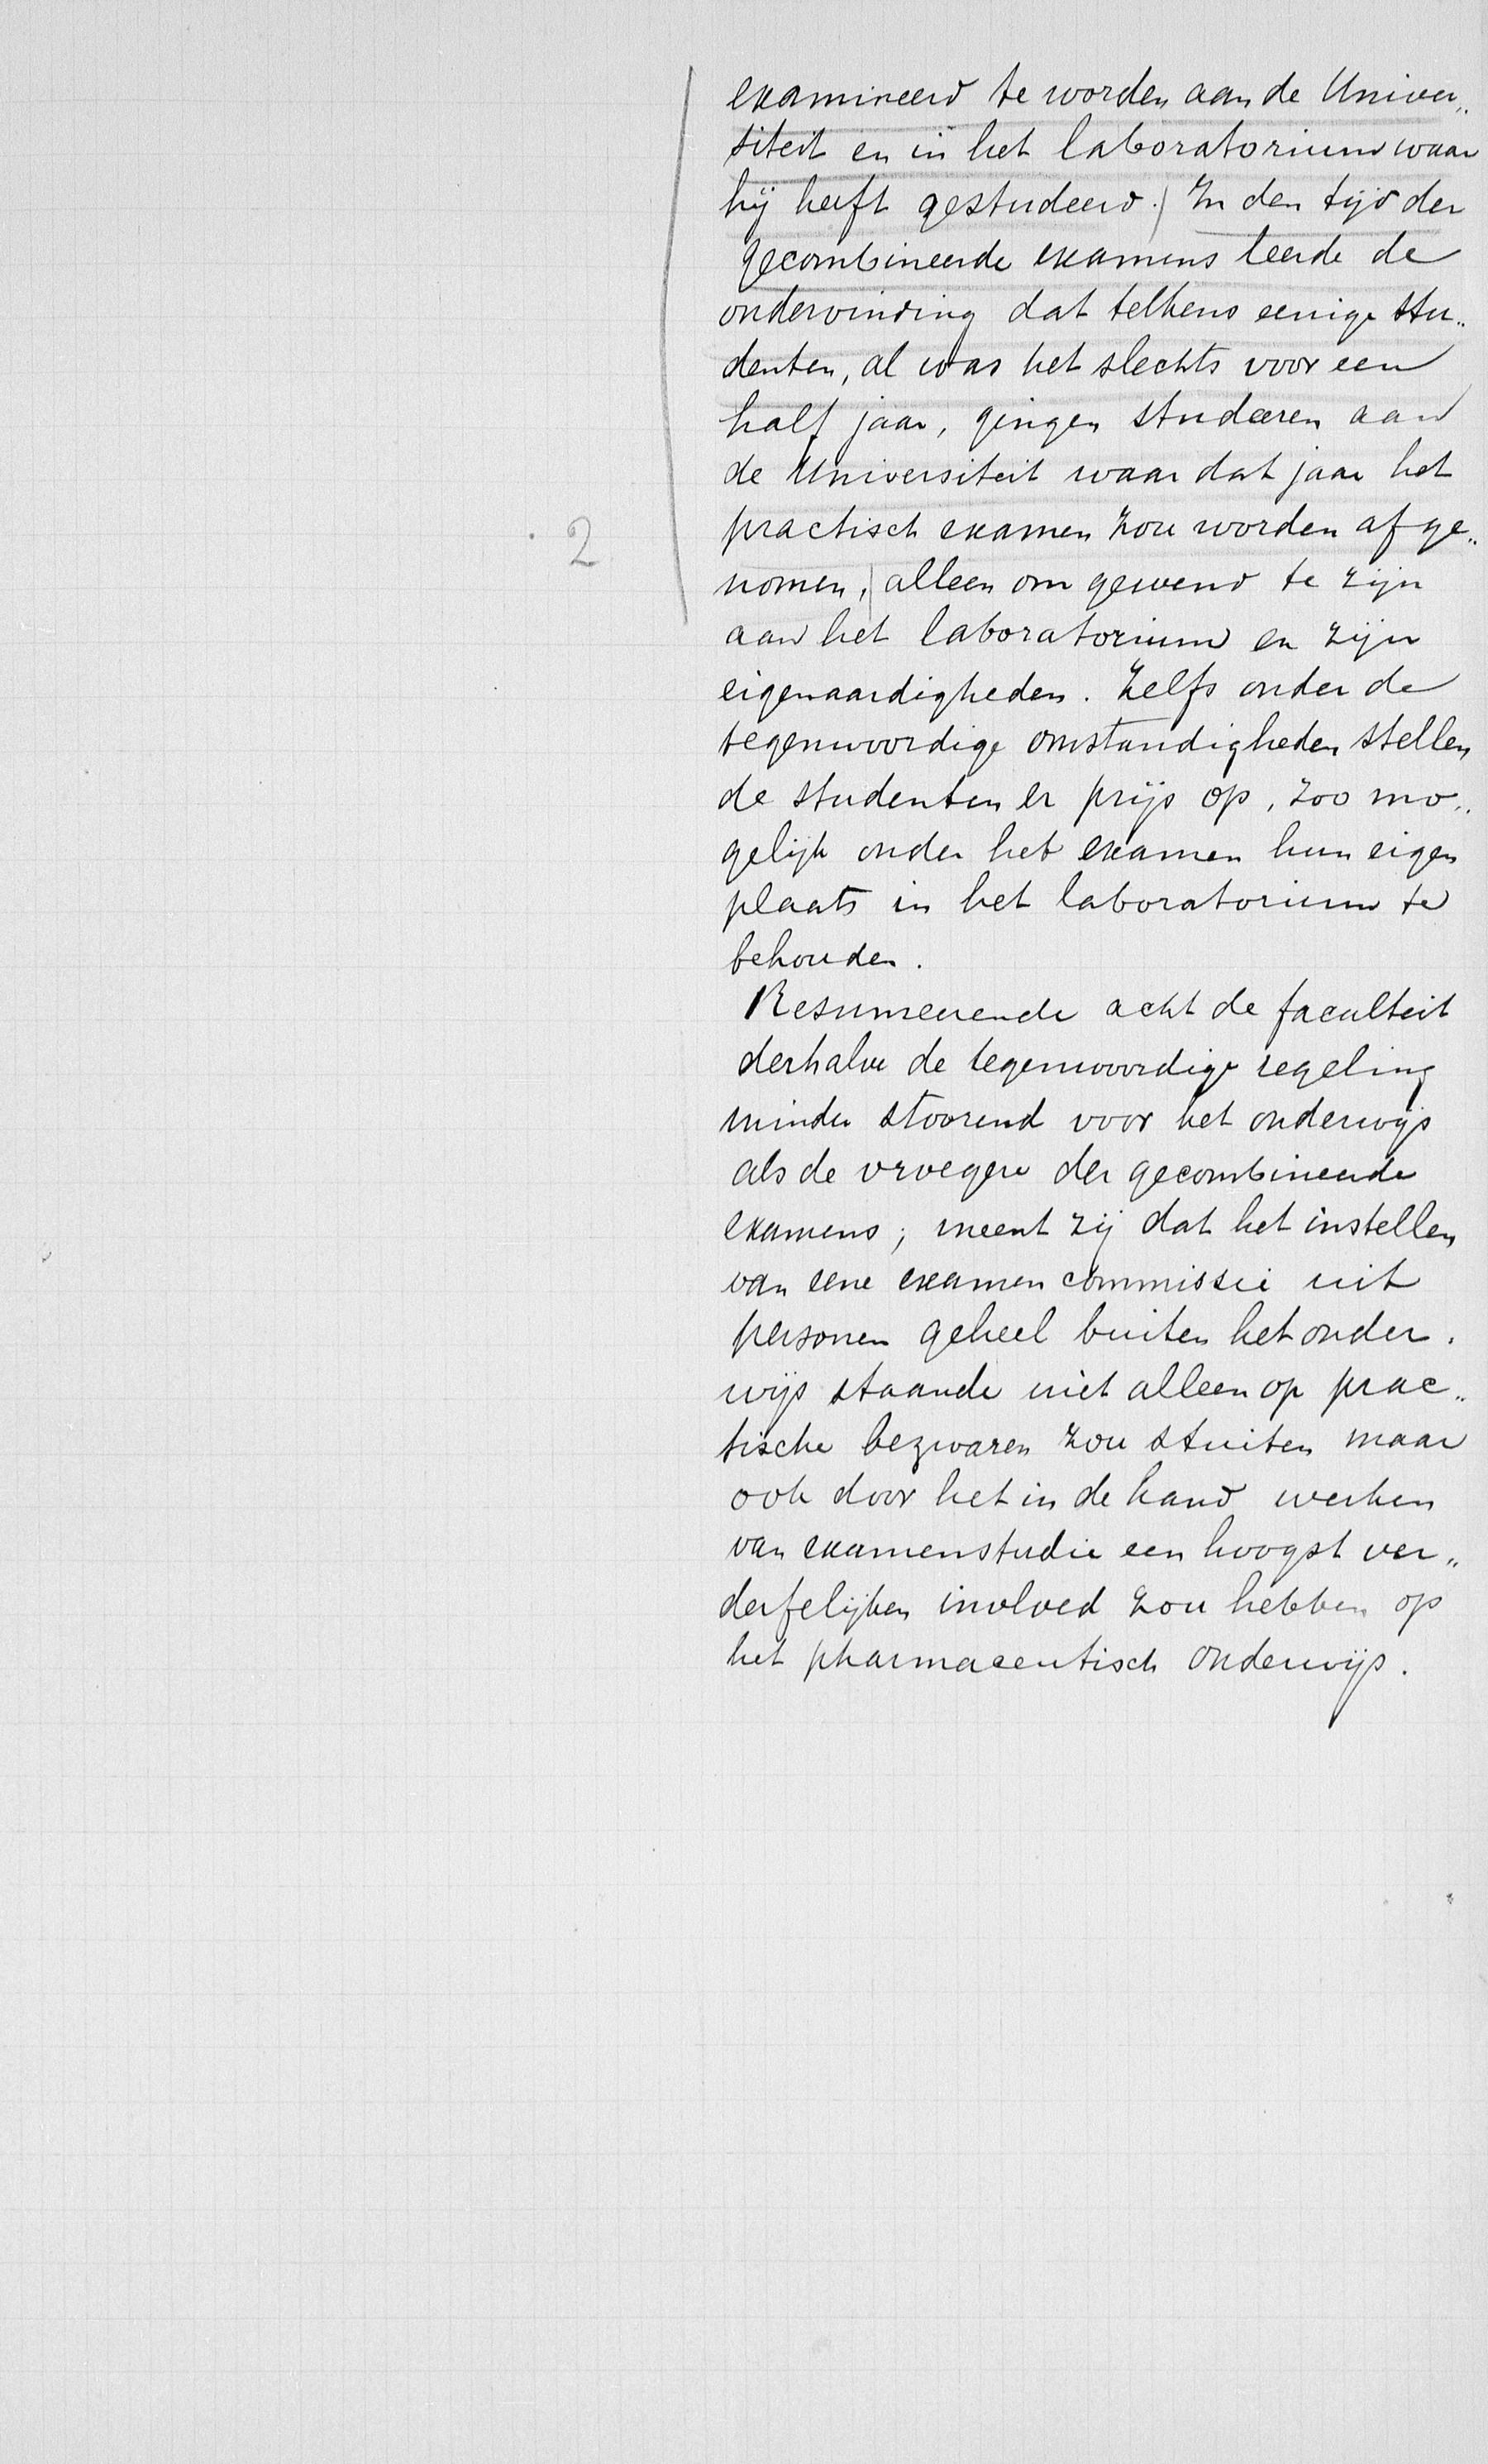 examineerd te worden aan de Univer„
siteit en in het laboratorium waar
hij heeft gestudeerd. | In den tijd der
gecombineerde examens leerde de
ondervinding dat telkens eenige stu„
denten, al was het slechts voor een
half jaar, gingen studeeren aan
de Universiteit waar dat jaar het
practisch examen zou worden afge„
2
nomen, | alleen om gewend te zijn
aan het laboratorium en zijn
eigenaardigheden. Zelfs onder de
tegenwoordige omstandigheden stellen
de studenten er prijs op, zoo mo„
gelijk onder het examen hun eigen
plaats in het laboratorium te
behouden.
Resumeerende acht de faculteit
derhalve de tegenwoordige regeling
minder stoorend voor het onderwijs
als de vroegere der gecombineerde
examens; meent zij dat het instellen
van eene examencommissie uit
personen geheel buiten het onder„
wijs staande niet alleen op prac„
tische bezwaren zou stuiten maar
ook door het in de hand werken
van examenstudie een hoogst ver„
derfelijken invloed zou hebben op
het pharmaceutisch onderwijs.